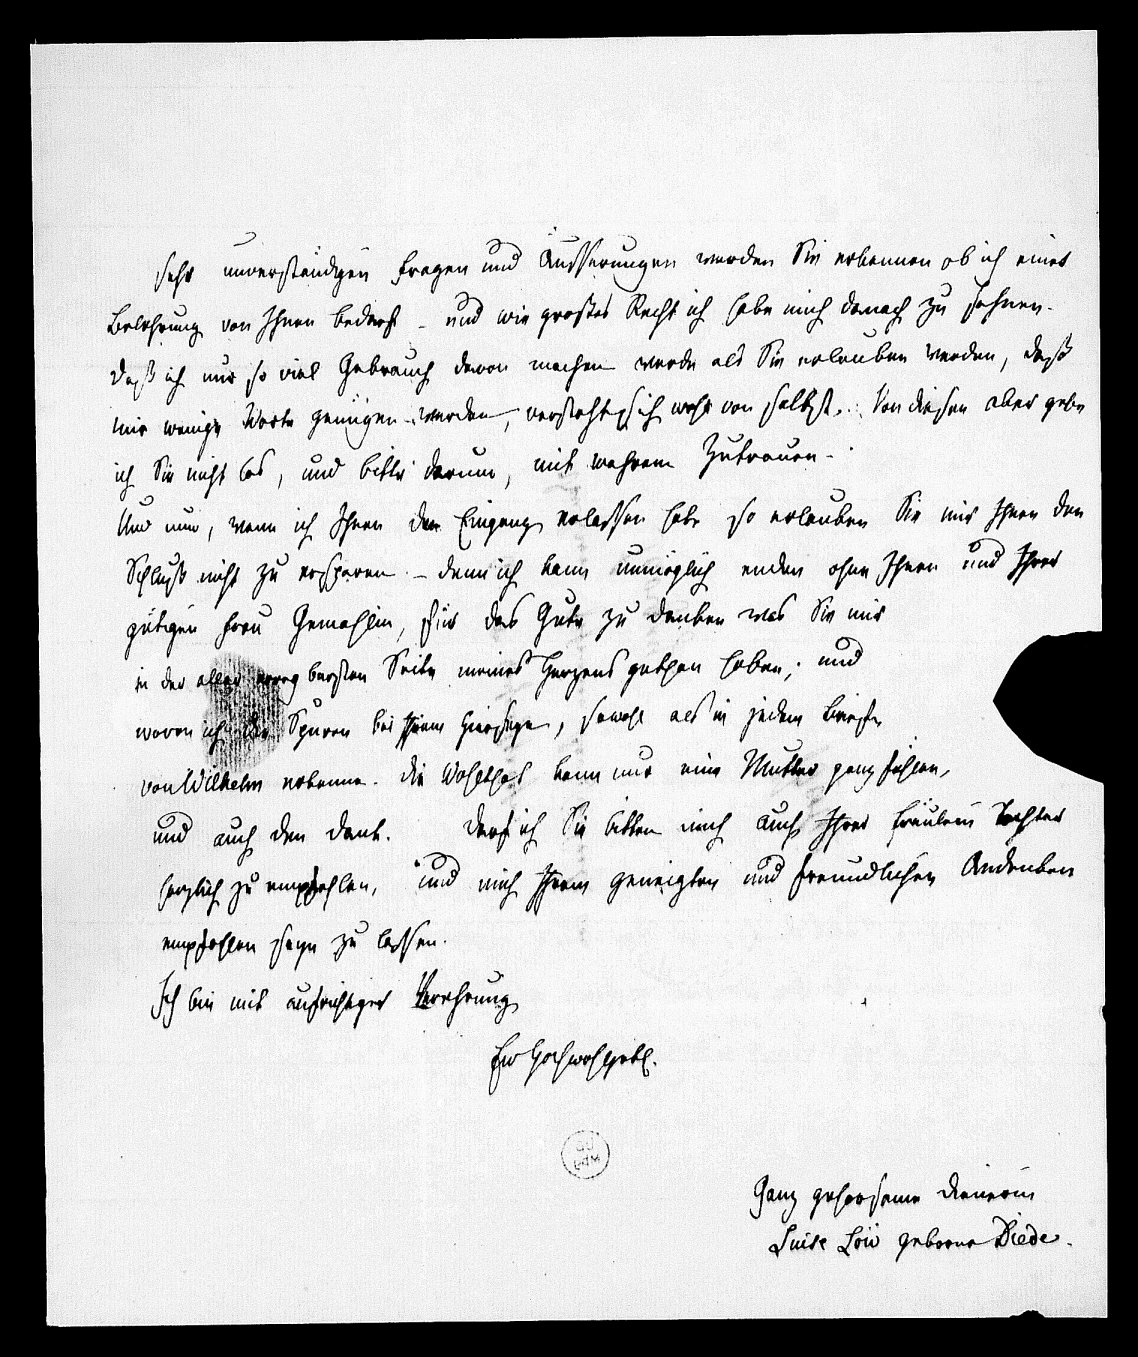 sehr unverständigen Fragen und Äusserungen werden Sie erkennen ob ich einer
Belehrung von Ihnen bedarf – und wie großes Recht ich habe mich danach zu sehnen.
Daß ich nur so viel Gebrauch davon machen werde als Sie erlauben werden, daß
mir wenige Worte genügen werden, versteht sich wohl von selbst. Von diesen aber gebe
ich Sie nicht los, und bitte darum, mit wahrem Zutrauen.
Und nun, wenn ich Ihnen den Eingang erlassen habe so erlauben Sie mir Ihnen den
Schluß nicht zu ersparen – denn ich kann unmöglich enden ohne Ihnen und Ihrer
gütigen Frau Gemahlin, für das Gute zu danken was Sie mir
in der aller erregbarsten Seite meines Herzens gethan haben; und
wovon ich die Spuren bei Ihrem Hierseyn, sowohl als in jedem Briefe
von Wilhelm erkenne. Die Wohlthat kann nur eine Mutter ganz fühlen,
und auch den Dank. Darf ich Sie bitten mich auch Ihrer Fräulein Tochter
herzlich zu empfehlen, und mich Ihrem geneigten und freundlichen Andenken
empfohlen seyn zu lassen.
Ich bin mit aufrichtiger Verehrung
Ew Hochwohlgebl.
Ganz gehorsame Dienerin
Luise Löw geborne Diede.